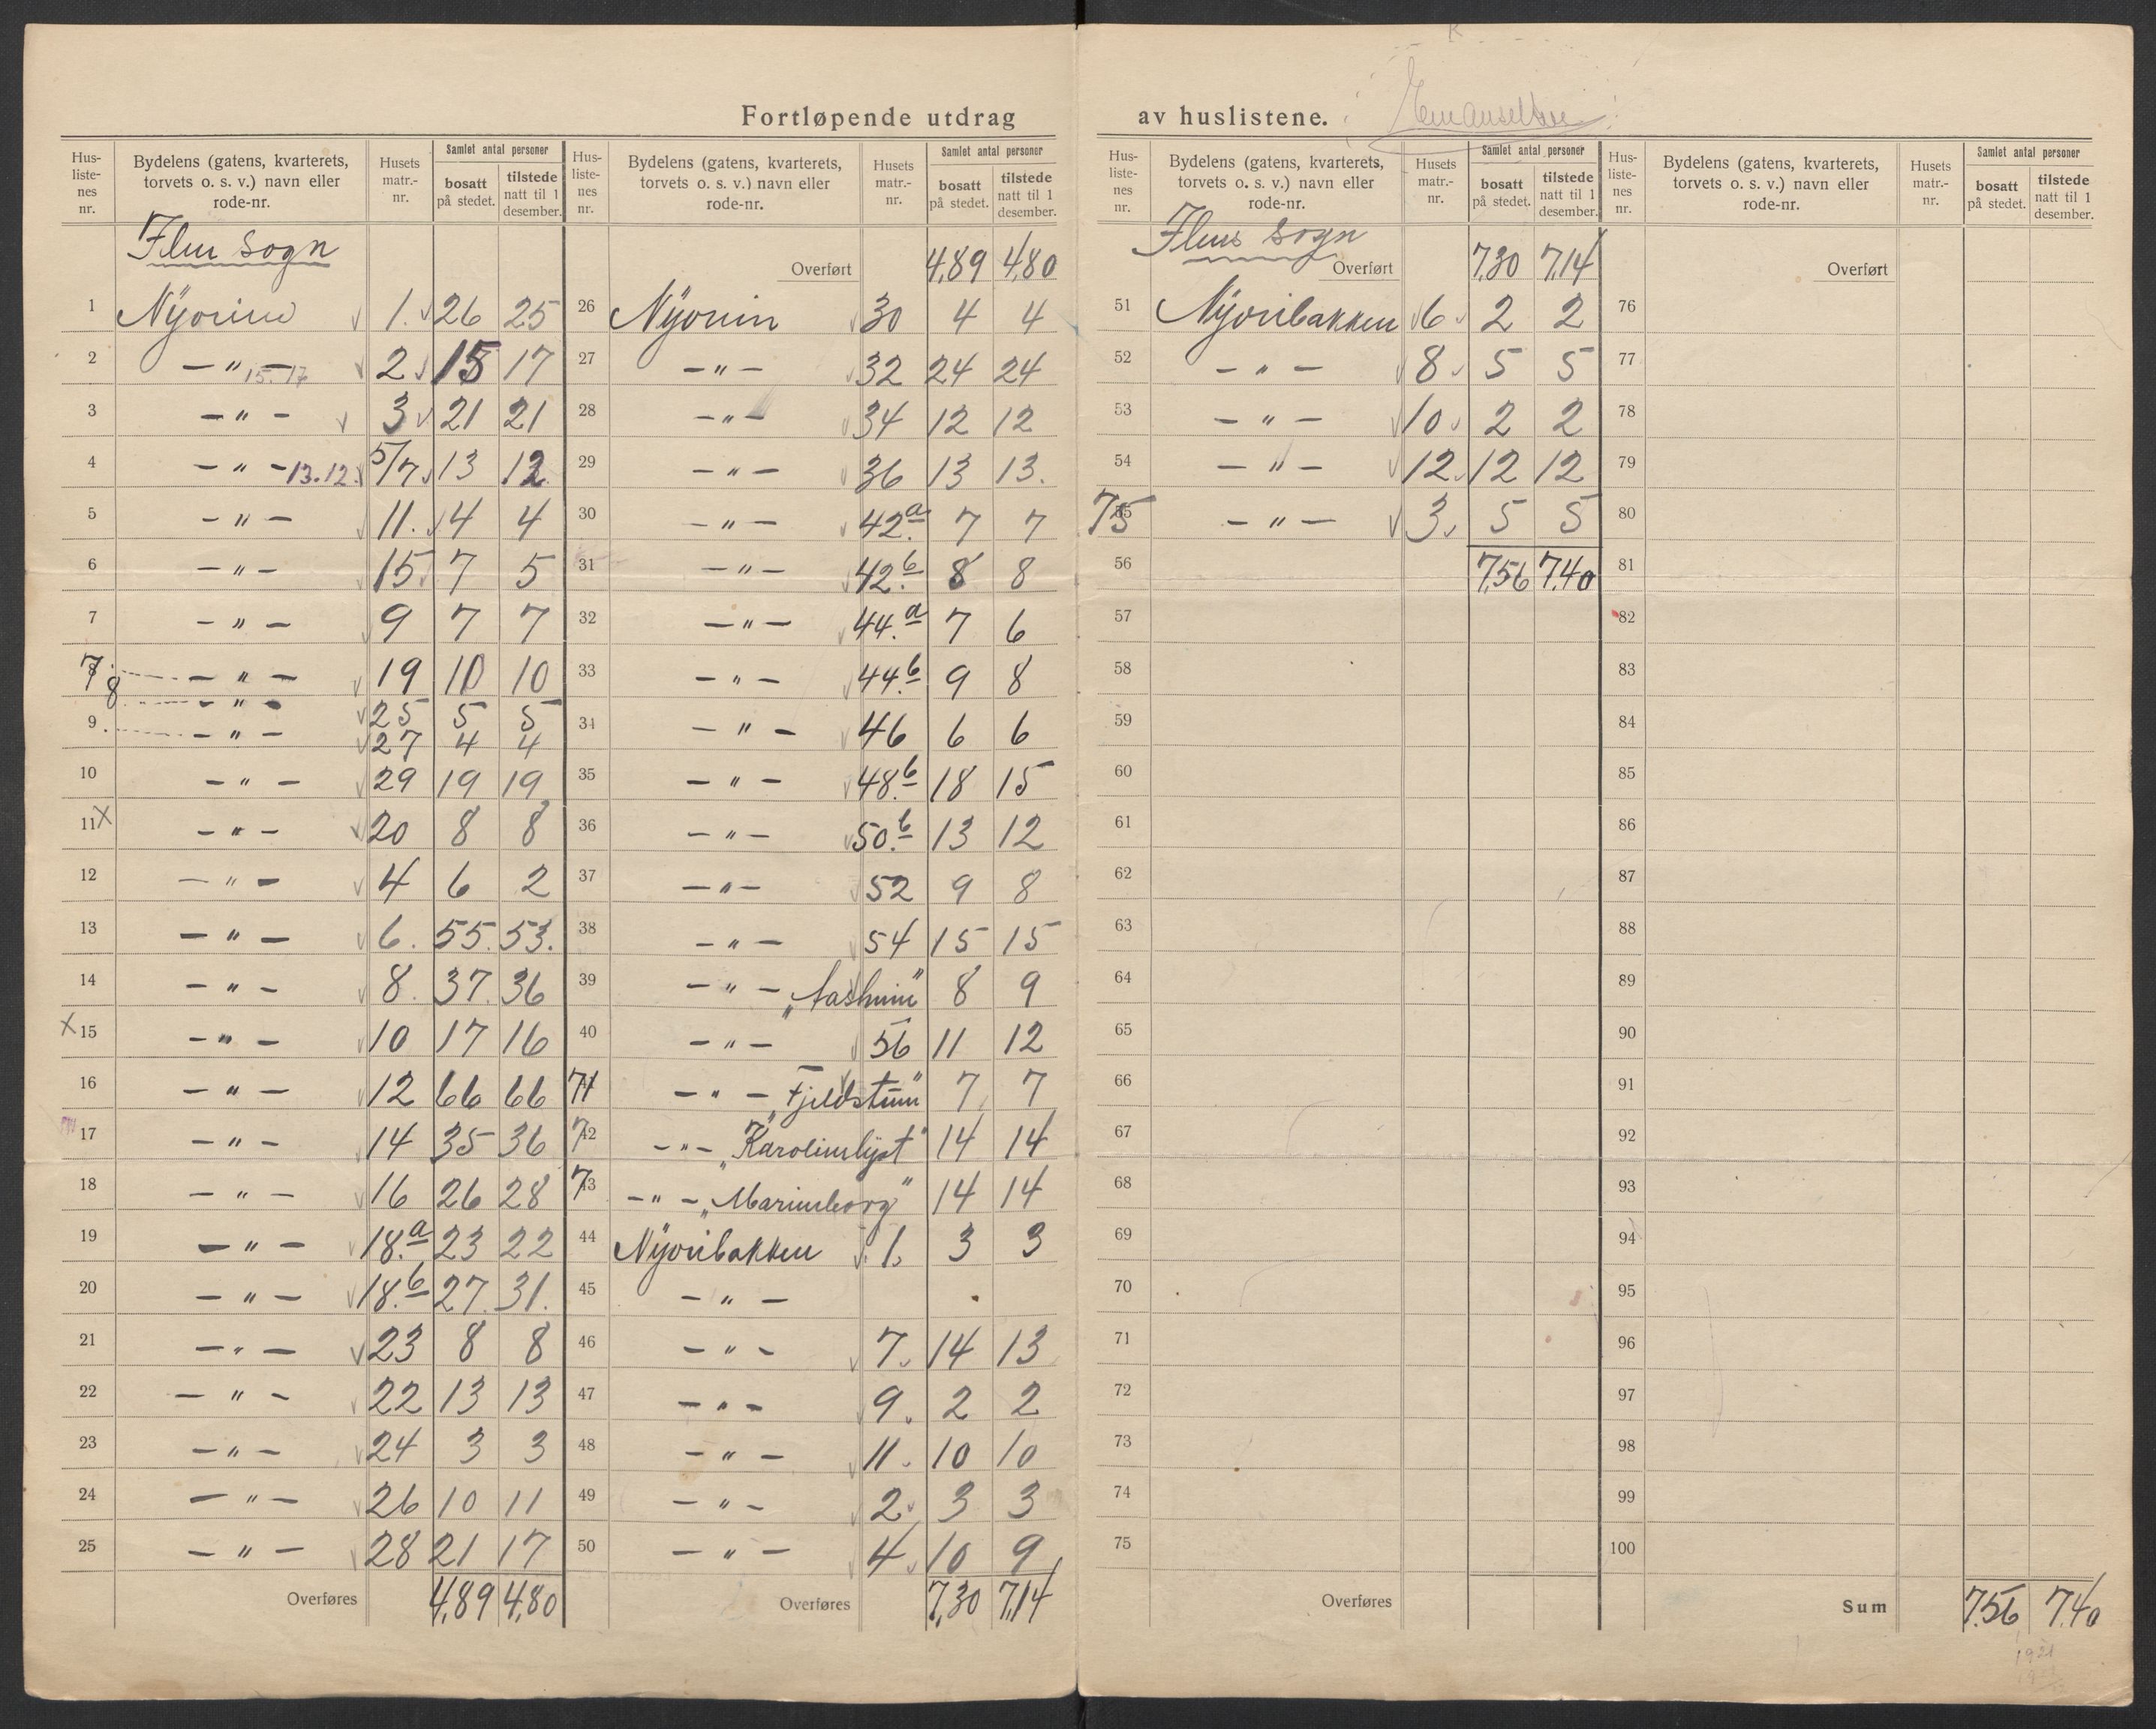 Fortløpende utdrag av huslistene.
Hus-listenes nr. | Bydelens (gatens, kvarterets, torvets o. s. v.) navn eller rode-nr. | Husets matr.-nr. | Samlet antal personer | bosatt på stedet. | tilstede natt til 1 desember.
1 Nyorine 1. 26 25
2 — " — 15. 17 2 15 17
3 — " — 3 21 21
4 — " — 13. 12. 5/7 13 12
5 — " — 11. 4 4
6 — " — 15 7 5
7 — " — 9 7 7
7 — " — 19 10 10
8 — " — 25 5 5
9 — " — 27 4 4
10 — " — 29 19 19
11 X — " — 20 8 8
12 — " — 4 6 2
13 — " — 6. 55. 53.
14 — " — 8. 37. 36
X 15 — " — 10 17 16
16 — " — 12 66 66
17 — " — 14 35 36
18 — " — 16 26 28
19 — " — 18.a 23 22
20 — " — 18.b 27. 31.
21 — " — 23 8 8
22 — " — 22 13 13
23 — " — 24 3 3
24 — " — 26 10 11
25 — " — 28 21 17
Overføres 4,89 4,80
Hus-listenes nr. | Bydelens (gatens, kvarterets, torvets o. s. v.) navn eller rode-nr. | Husets matr.-nr. | Samlet antal personer | bosatt på stedet. | tilstede natt til 1 desember.
Overført 4,89 4,80
26 30 4 4
27 — " — 32 24 24
28 — " — 34 12 12
29 — " — 36 13 13.
30 — " — 42.a 7 7
31 — " — 42.b 8 8
32 — " — 44.a 7 6
33 — " — 44.b 9 8
34 — " — 46 6 6
35 — " — 48.b 18 15
36 — " — 50.b 13 12
37 — " — 52 9 8
38 — " — 54 15 15
39 — " — 8 9
40 — " — 56 11 12
41 — " — 7 7
42 — " — 14 14
43 — " — 14 14
44 1. 3 3
45 — " —
46 — " — 7. 14 13
47 — " — 9. 2 2
48 — " — 11. 10 10
49 — " — 2. 3 3
50 — " — 4. 10 9
Overføres 7,30 7,14
Hus-listenes nr. | Bydelens (gatens, kvarterets, torvets o. s. v.) navn eller rode-nr. | Husets matr.-nr. | Samlet antal personer | bosatt på stedet. | tilstede natt til 1 desember.
Sogn
Overført 7,30 7,14
51 Nyoribakken 6 2 2
52 — " — 8 5 5
53 — " — 10. 2 2
54 — " — 12. 12 12
75 — " — 3. 5 5
56 7,56 7,40
57
58
59
60
61
62
63
64
65
66
67
68
69
70
71
72
73
74
75
Overføres
Hus-listenes nr. | Bydelens (gatens, kvarterets, torvets o. s. v.) navn eller rode-nr. | Husets matr.-nr. | Samlet antal personer | bosatt på stedet. | tilstede natt til 1 desember.
Overført
76
77
78
79
80
81
82
83
84
85
86
87
88
89
90
91
92
93
94
95
96
97
98
99
100
Sum 7.56 7.40
1921